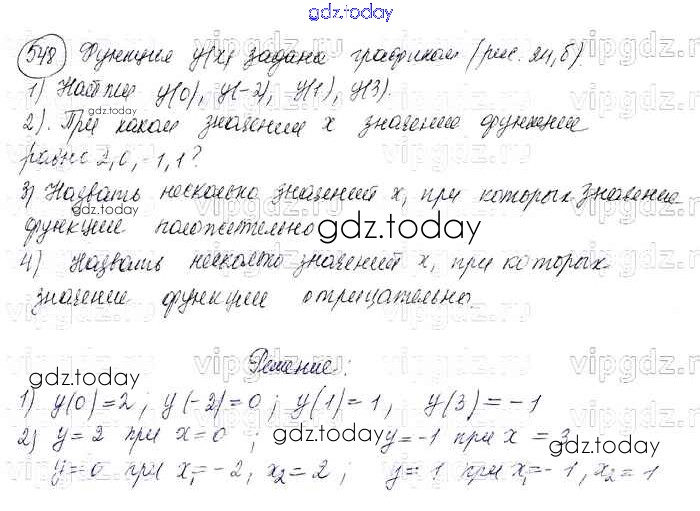 gdz.today
548 Функция y(x) задана графиком (рис. 24, б).
1) Найти y(0), y(-2), y(1), y(3).
gdz.today
2). При каком значении x значение функции
равно 2, 0, -1, 1?
3) Назвать несколько значений x, при которых значение
функции положительно
gdz.today
4) Назвать несколько значений x, при которых
значение функции отрицательно.
Решение:
gdz.today
1) y(0)=2; y(-2)=0; y(1)=1, y(3)=-1
2) y=2 при x=0; y=-1 при x=3
gdz.today
y=0 при x₁=-2, x₂=2; y=1 при x₁=-1, x₂=1
gdz.today